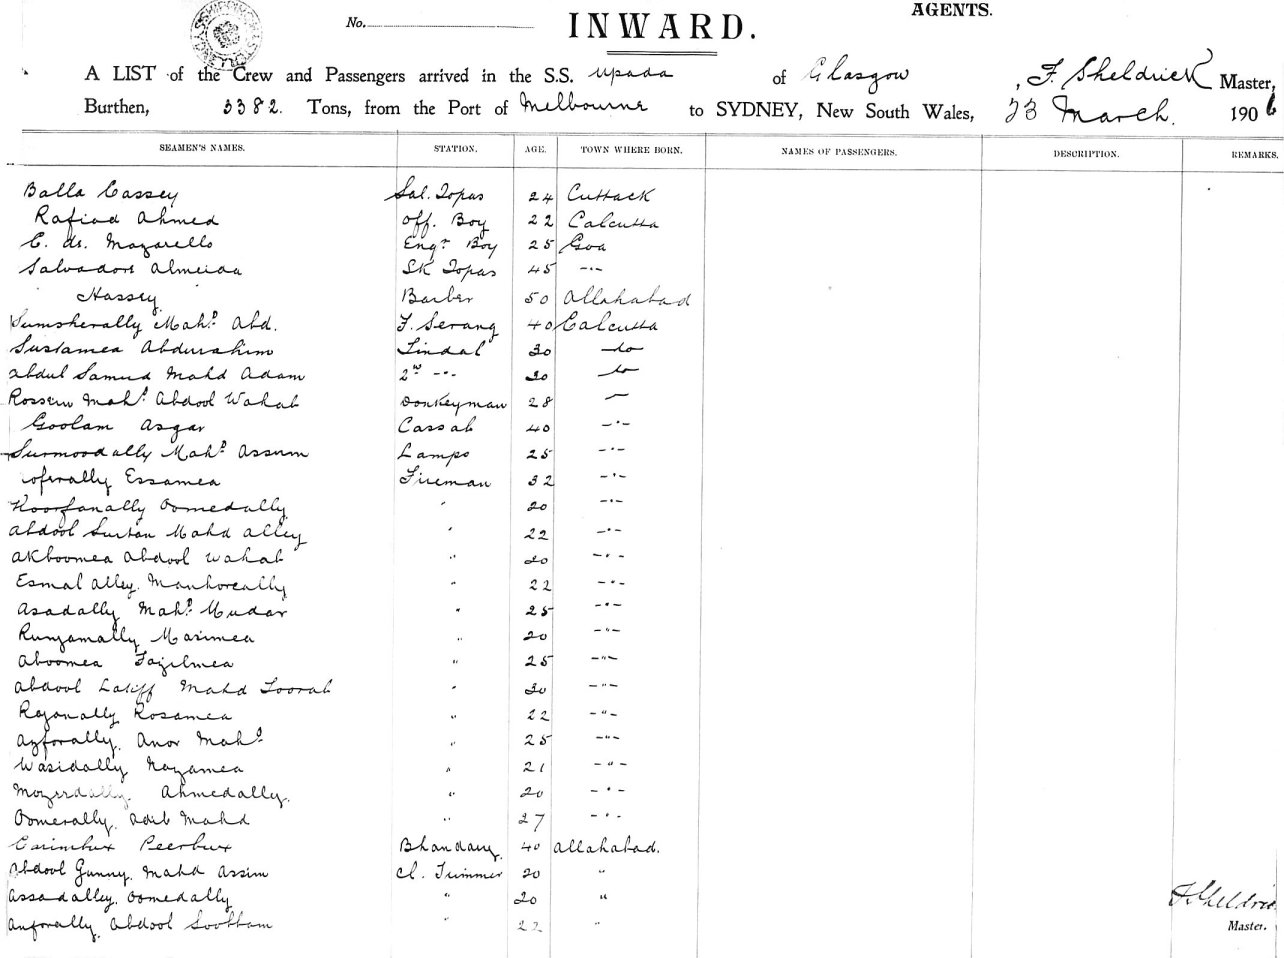 AGENTS.
No. INWARD.
A LIST of the Crew and Passengers arrived in the S.S. Upada of Glasgow, F. Sheldrick Master,
Burthen, 3382. Tons, from the Port of Melbourne to SYDNEY, New South Wales, 23 March. 1906
SEAMEN'S NAMES. STATION. AGE. TOWN WHERE BORN. NAMES OF PASSENGERS. DESCRIPTION. REMARKS.
Balla Cassey Sal. Topas 24 Cuttack
Rafiad Ahmed Off. Boy 22 Calcutta
C. de. Mazarello Engr Boy 25 Goa
Salvadore Almeida SK Topas 45 -"-
Hassey Barber 50 Allahabad
Sumsherally Mahd Abd. F. Serang 40 Calcutta
Sustamea Abdurahim Tindal 30 do
Abdul Samud Mahd Adam 2nd -"- 30 do
Mahd Abdool Wahab Donkeyman 28 —
Goolam Asgar Cassab 40 -"-
Surmoodally Mahd Assum Lamps 25 -"-
Essamea Fireman 32 -"-
Koorfanally Oomedally " 20 -"-
Abdool Sultan Mahd Alley " 22 -"-
Akboomea Abdool Wahab " 20 -"-
Esmal Alley. Manhoreally " 22 -"-
Asadally Mahd Mudar " 25 -"-
Runzamally Marimea " 20 -"-
Aboomea Fazilmea " 25 -"-
Abdool Latiff Mahd Toorab " 30 -"-
Rozonally Rosamea " 22 -"-
Azforally. Anor Mahd " 25 -"-
Wasidally Nazamea " 21 -"-
Mozerdally. Ahmedally. " 20 -"-
Oomerally. Adib Mahd " 27 -"-
Carimbux Peerbux Bhandary. 40 Allahabad.
Abdool Gunny. Mahd Assim Cl. Trimmer 20 "
Assadalley. Oomedally " 20 "
Abdool " 22 "
F. Sheldrick
Master.